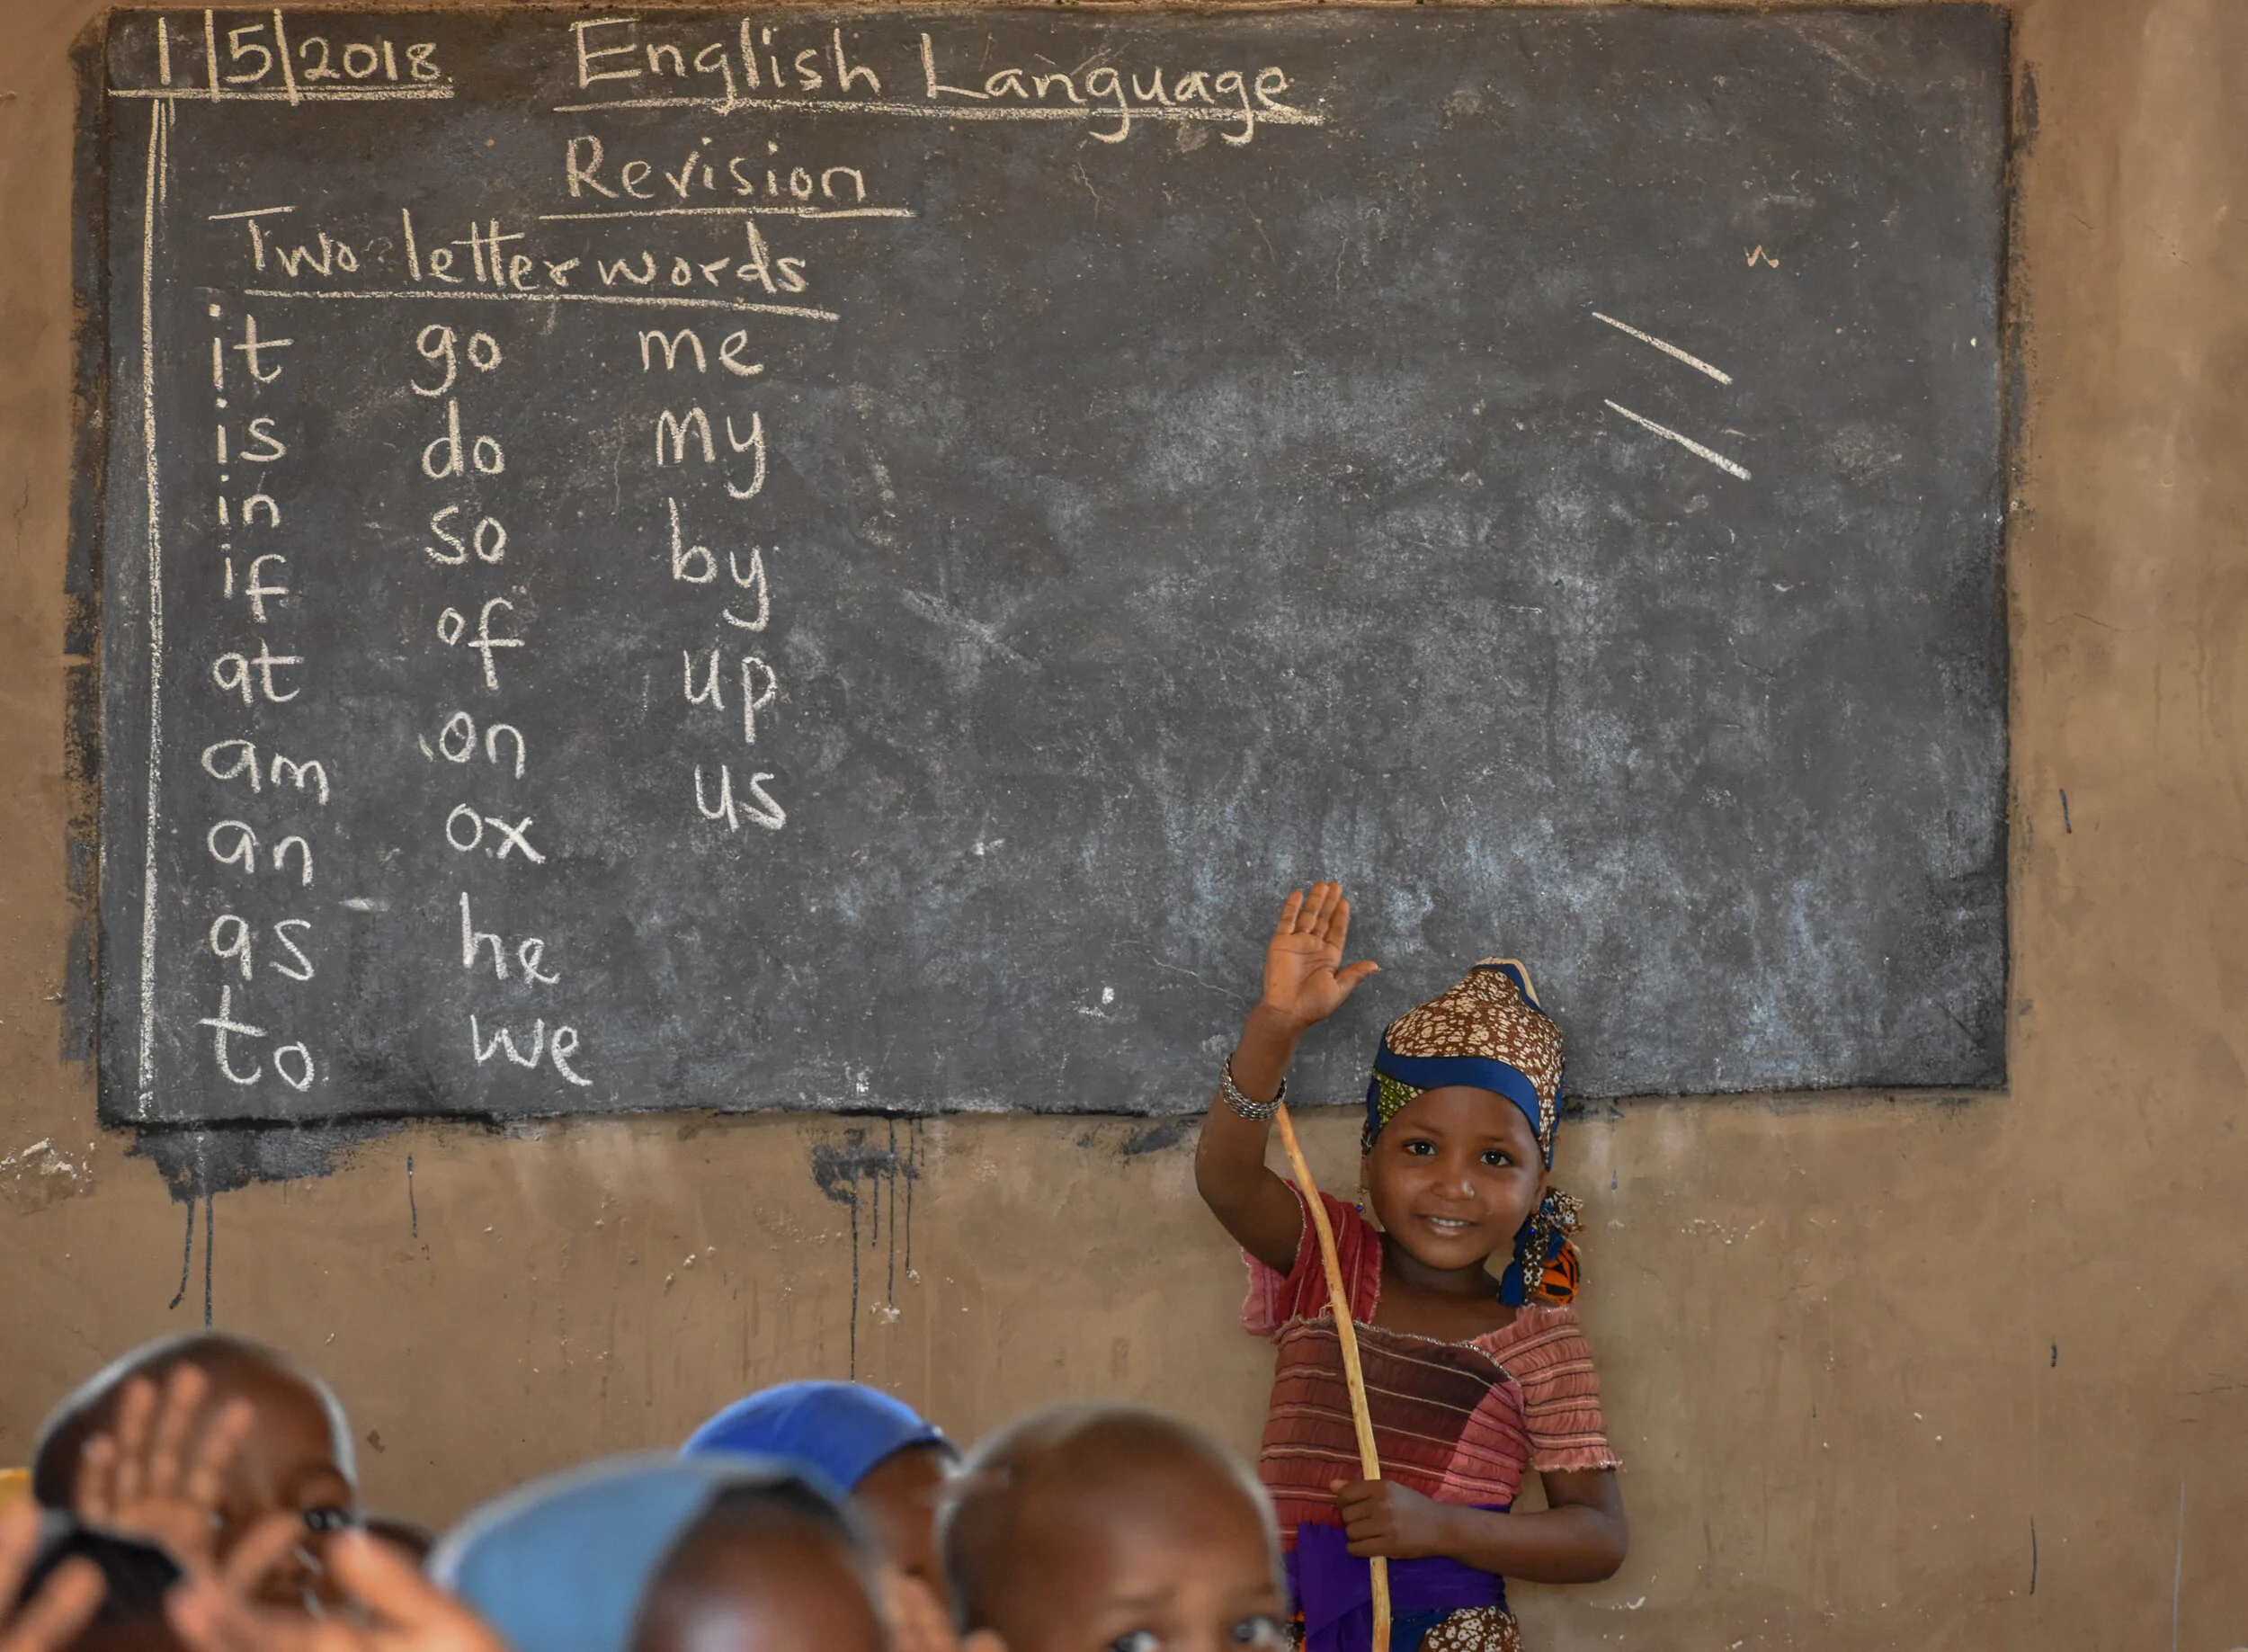 1/5/2018. English Language
Revision
Two letter words
it go me
is do my
in so by
if of up
at on us
am ox
an he
as we
to